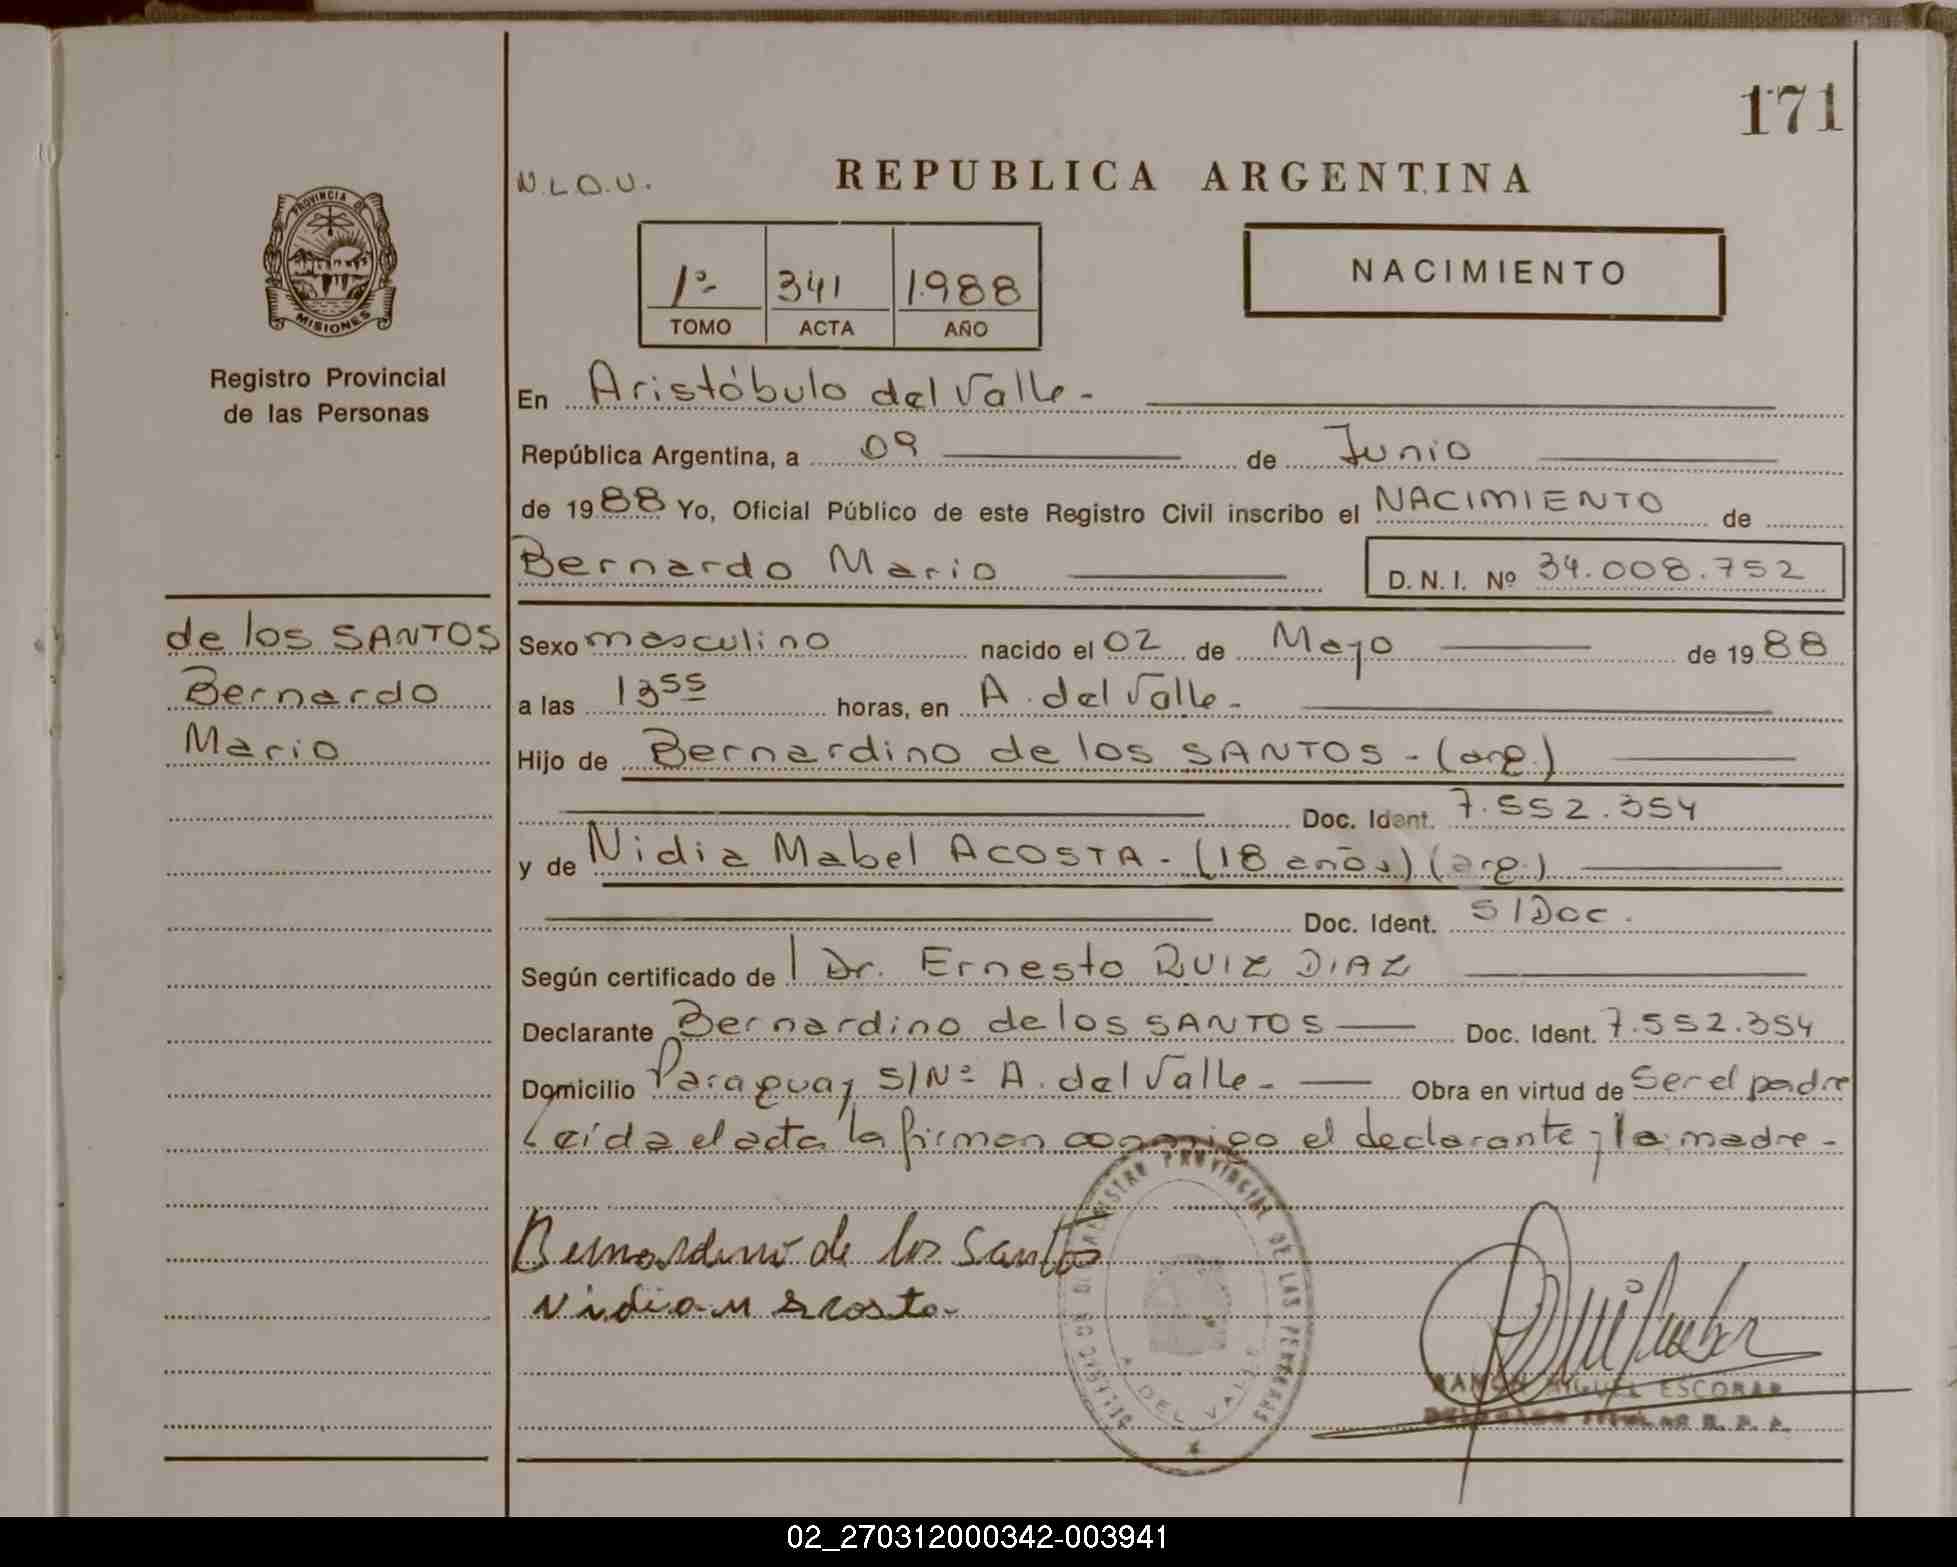 171
N.L.O.U.
REPUBLICA ARGENTINA
PROVINCIA DE
MISIONES
Registro Provincial
de las Personas
1º
341
1988
TOMO
ACTA
AÑO
NACIMIENTO
En Aristóbulo del Valle-
República Argentina, a 09 de Junio
de 1988 Yo, Oficial Público de este Registro Civil inscribo el NACIMIENTO de
Bernardo Mario D.N.I. Nº 34.008.752
de los SANTOS
Bernardo
Mario
Sexo masculino nacido el 02 de Mayo de 1988
a las 13 55 horas, en A. del Valle-
Hijo de Bernardino de los SANTOS-(arg.)
Doc. Ident. 7.552.354
y de Nidia Mabel ACOSTA-(18 años)(arg.)
Doc. Ident. S/Doc.
Según certificado de Dr. Ernesto RUIZ DIAZ
Declarante Bernardino de los SANTOS Doc. Ident. 7.552.354
Domicilio Paraguay S/Nº A. del Valle- Obra en virtud de Ser el padre
Leída el acta la firman conmigo el declarante y la madre-
Bernardino de los Santos
Nidia M Acosta
REGISTRO PROVINCIAL DE LAS PERSONAS
A. DEL VALLE
RAMON MIGUEL ESCOBAR
02_270312000342-003941